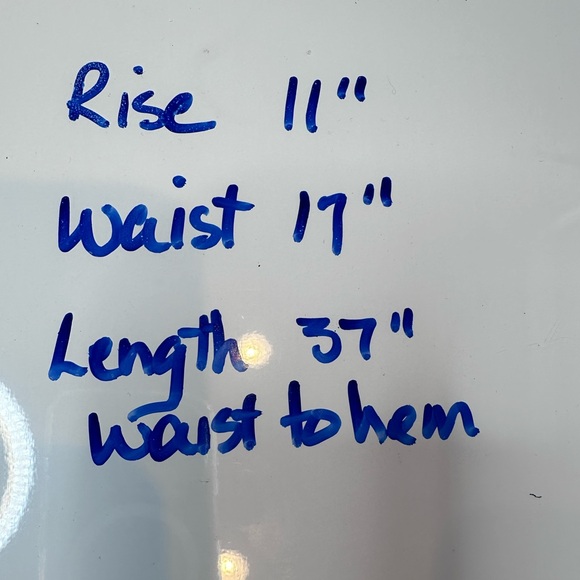 Rise 11"
Waist 17"
Length 37"
Waist to hem